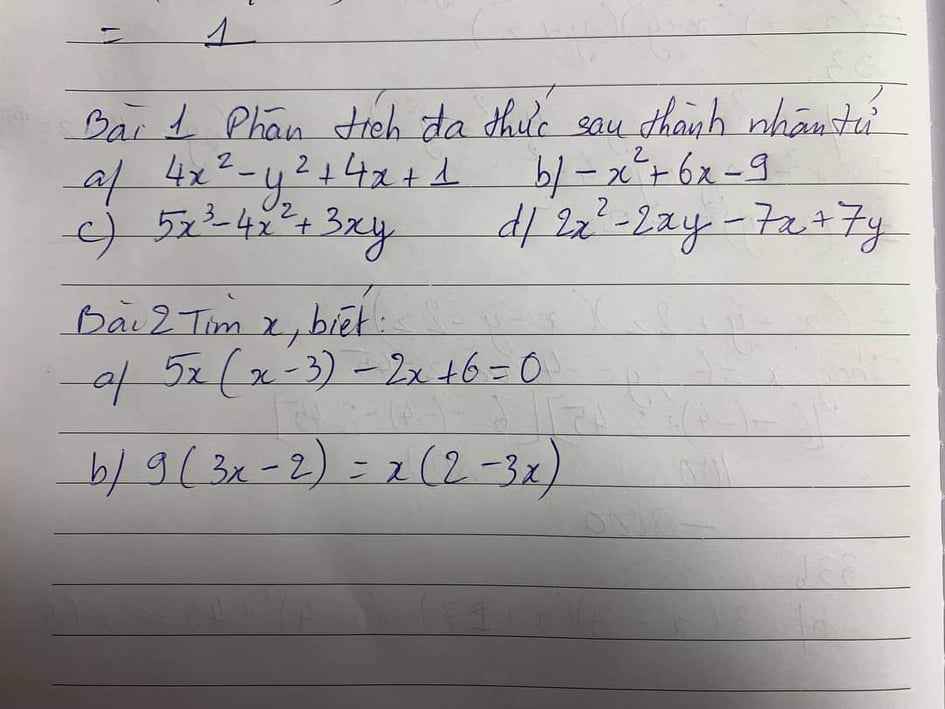 = 1
Bài 1 Phân tích đa thức sau thành nhân tử
a/ 4x² - y² + 4x + 1 b/ - x² + 6x - 9
c) 5x³ - 4x² + 3xy d/ 2x² - 2xy - 7x + 7y
Bài 2 Tìm x, biết:
a/ 5x ( x - 3) - 2x + 6 = 0
b/ 9 ( 3x - 2) = x ( 2 - 3x)